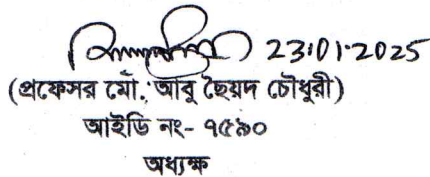 23.01.2025
(প্রফেসর মো. আবু ছৈয়দ চৌধুরী)
আইডি নং- ৭৫৯০
অধ্যক্ষ